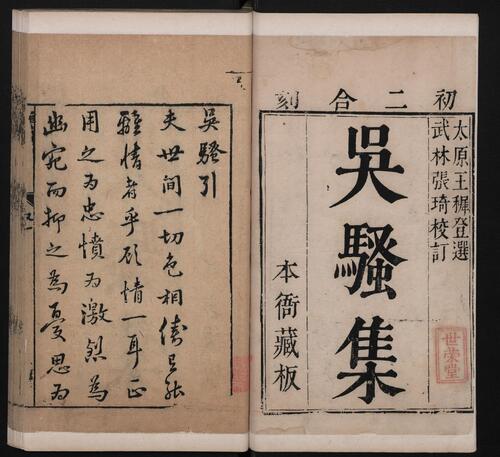 初二合刻
太原王穉登選
武林張琦校訂
吳騷集
本衙藏板
世荣堂
吳騷引
夫世間一切色相儔有能
離情者乎顧情一耳正
用之為忠憤為激烈為
幽宛而抑之為憂思為